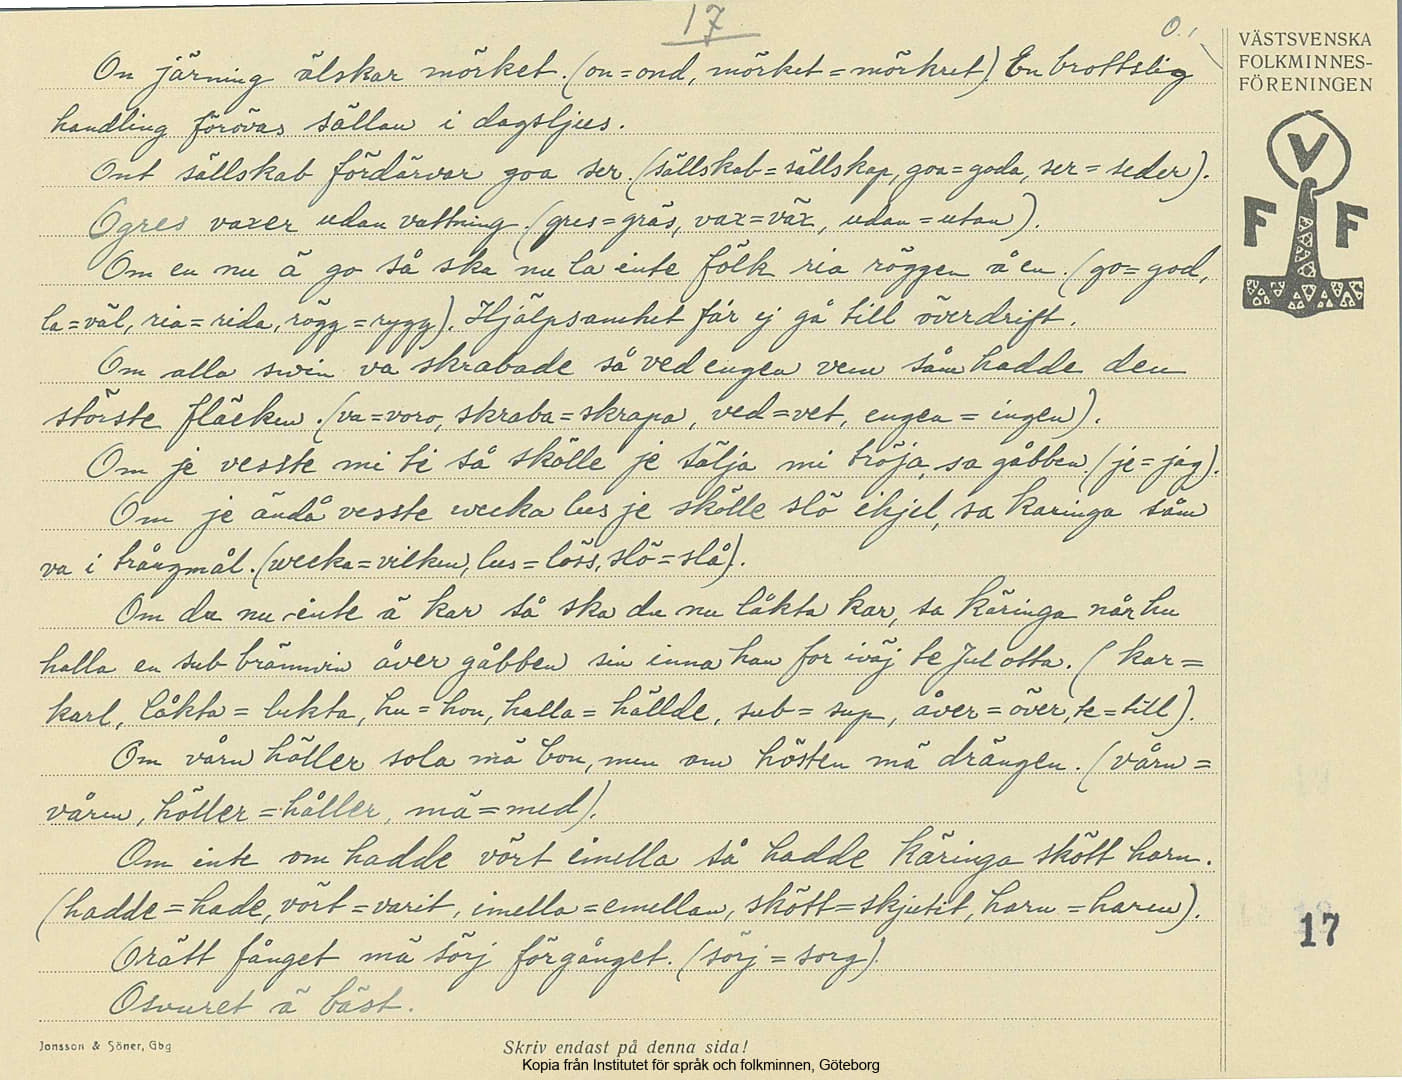 17
O.
VÄSTSVENSKA
FOLKMINNES-
FÖRENINGEN
V
F F
On järning älskar mörket. (on=ond, mörket=mörkret). En brottslig
handling förövas sällan i dagsljus.
Ont sällskab fördärvar goa ser. (sällskab=sällskap, goa=goda, ser=seder).
Ogres vaxer udan vattning. (gres=gräs, vax=väx, udan=utan).
Om en nu ä go så ska nu la inte fölk ria röggen å en. (go=god,
la=väl, ria=rida, rögg=rygg). Hjälpsamhet får ej gå till överdrift.
Om alla svin va skrabade så ved engen vem såm hadde den
störste fläcken. (va=voro, skraba=skrapa, ved=vet, engen=ingen).
Om je vesste mi ti så skölle je sälja mi tröja, sa gåbben. (je=jag).
Om je ändå vesste wecka lus je skölle slö ihjel, sa karinga såm
va i trångmål. (wecka=vilken, lus=löss, slö=slå).
Om du nu inte ä kar så ska du nu låkta kar, sa käringa når hu
halla en sub brännvin åver gåbben sin inna han for iväj te Julotta. (kar=
karl, låkta=lukta, hu=hon, halla=hällde, sub=sup, åver=över, te=till).
Om vårn håller sola mä bon, men om hösten mä drängen. (vårn=
våren, höller=håller, mä=med).
Om inte om hadde vört imella så hadde käringa skött harn.
(hadde=hade, vört=varit, imella=emellan, skött=skjutit, harn=haren).
Orätt fånget mä sörj förgånget. (sörj=sorg)
Osvuret ä bäst.
17
Jonsson & Söner, Gbg
Skriv endast på denna sida!
Kopia från Institutet för språk och folkminnen, Göteborg